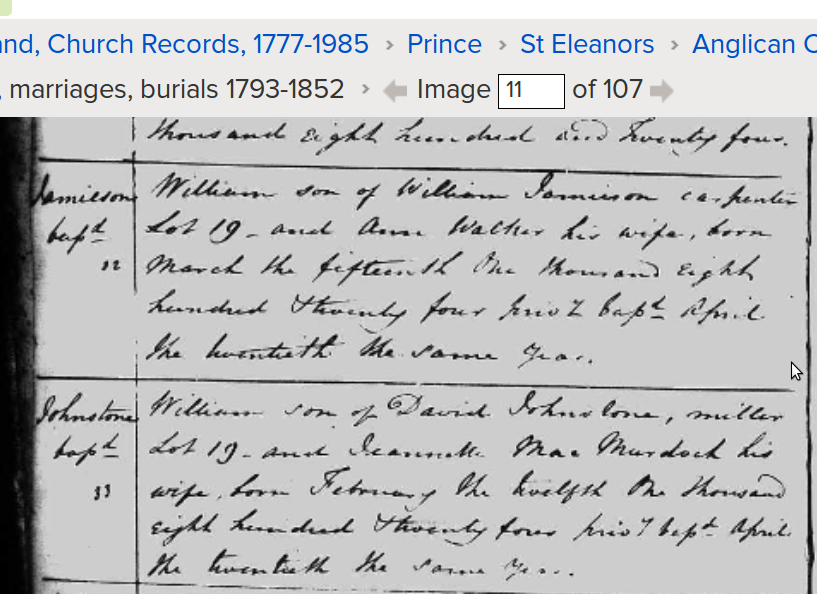 nd, Church Records, 1777-1985 › Prince › St Eleanors › Anglican C
, marriages, burials 1793-1852 › Image 11 of 107
thousand eight hundred and Twenty four.
Jamieson William son of William Jamieson carpenter
bapd Lot 19 - and Ann Walker his wife, born
March the fifteenth One thousand Eight
hundred & twenty four priv7 bapd April
the twentieth the same year.
Johnstone William son of David Johnstone, miller
bapd Lot 19 - and Jeannett Mac Murdock his
33 wife, born February the twelfth One thousand
eight hundred & twenty four priv7 bapd April
the twentieth the same year.